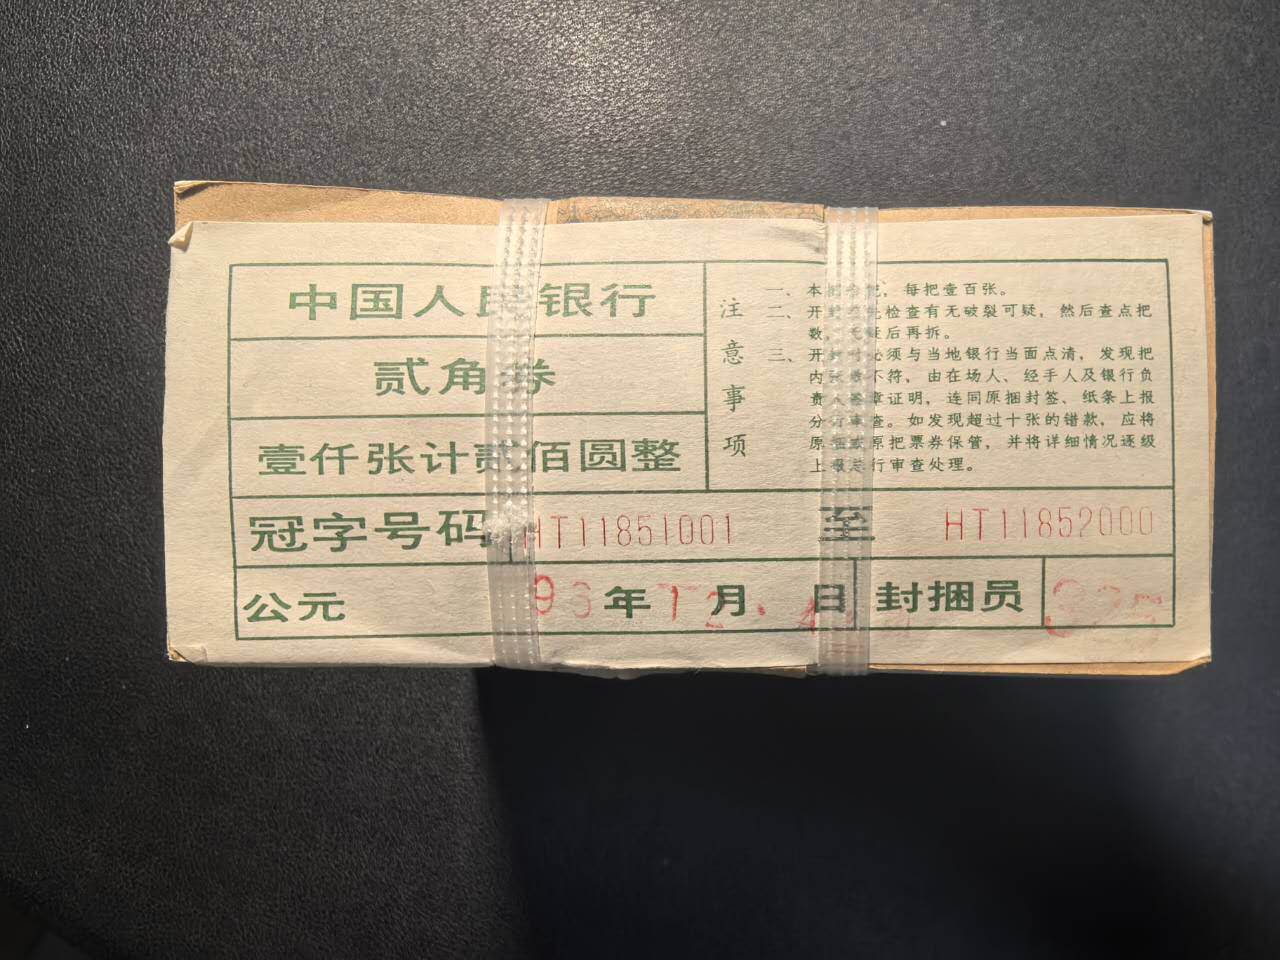 中国人民银行
贰角券
壹仟张计贰佰圆整
注意事项
一、本捆拾把，每把壹百张。
二、开封前先检查有无破裂可疑，然后查点把
数，无疑后再拆。
三、开封时必须与当地银行当面点清，发现把
内张数不符，由在场人、经手人及银行负
责人签章证明，连同原捆封签、纸条上报
分行审查。如发现超过十张的错款，应将
原捆或原把票券保管，并将详细情况逐级
上报总行审查处理。
冠字号码 HT11851001 至 HT11852000
公元 96年12月 日 封捆员